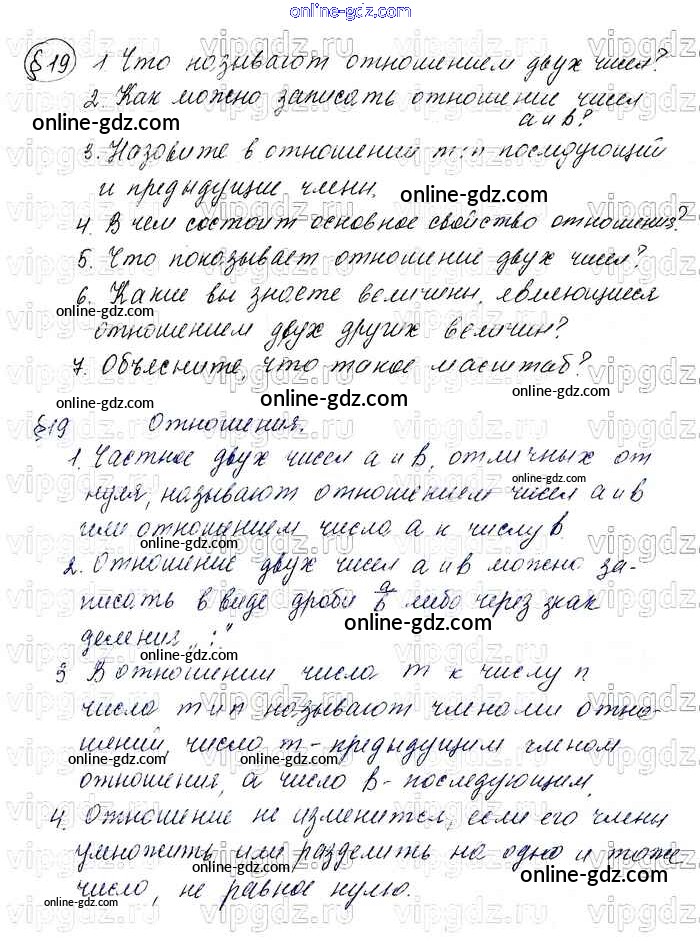 online-gdz.com
§19 1 Что называют отношением двух чисел?
2. Как можно записать отношение чисел
а и в?
online-gdz.com
3. Назовите в отношении m:n последующий
и предыдущие члены.
online-gdz.com
4. В чем состоит основное свойство отношения?
5. Что показывает отношение двух чисел?
online-gdz.com
6. Какие вы знаете величины, являющиеся
online-gdz.com
отношением двух других величин?
7. Объясните, что такое масштаб?
online-gdz.com
online-gdz.com
§19 Отношения.
1. Частное двух чисел а и в, отличных от
online-gdz.com
нуля, называют отношением чисел а и в
или отношением числа а к числу в.
online-gdz.com
2. Отношение двух чисел а и в можно за-
писать в виде дроби а/в либо через знак
online-gdz.com
деления „:"
3 В отношении числа m к числу n
online-gdz.com
числа m и n называют членами отно-
шений, число m - предыдущим членом
online-gdz.com
отношения, а число в - последующим.
online-gdz.com
4. Отношение не изменится, если его члены
умножить или разделить на одно и тоже
online-gdz.com
число, не равное нулю.
online-gdz.com